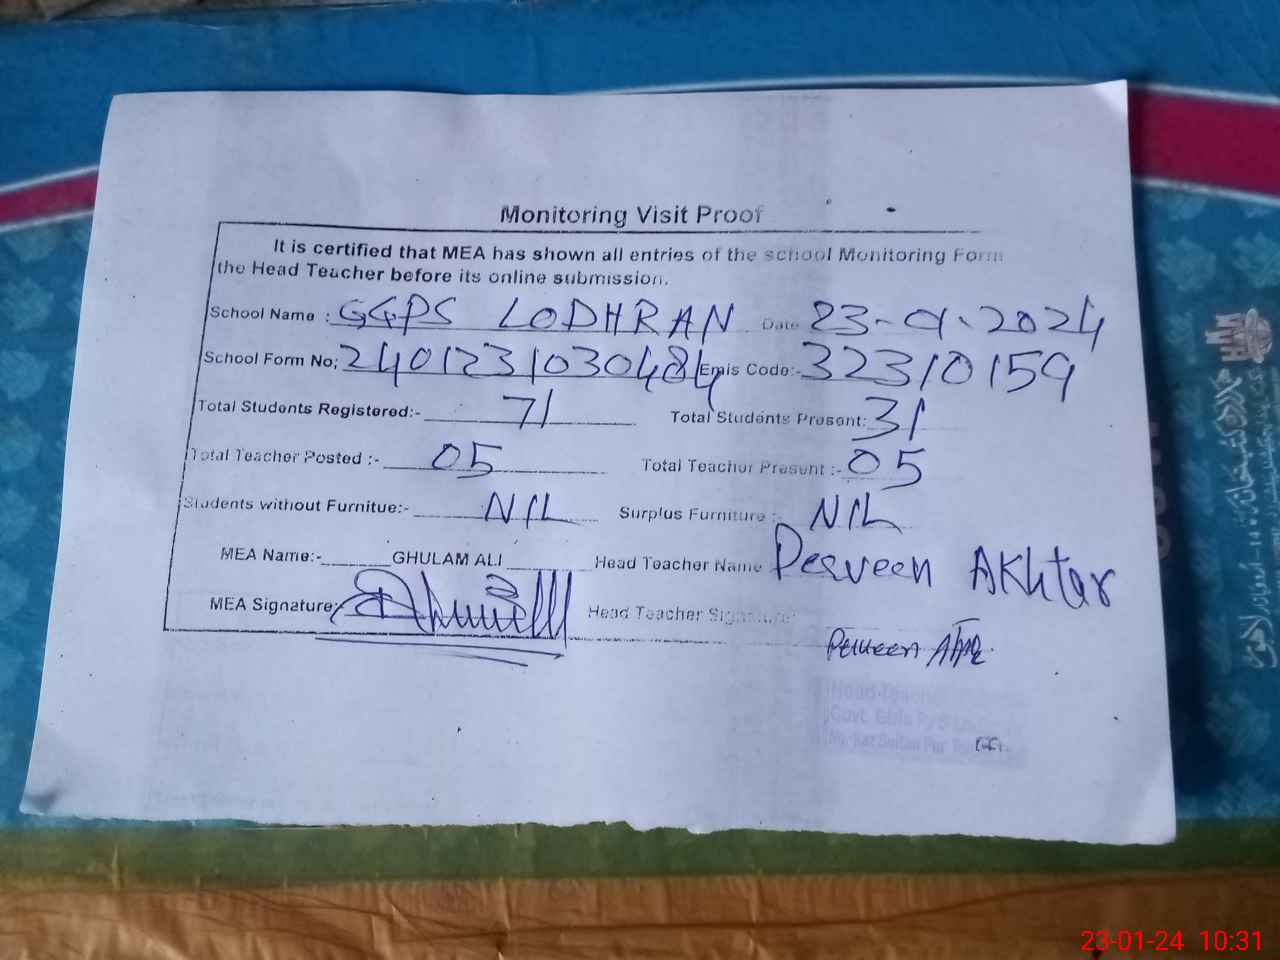 Monitoring Visit Proof
It is certified that MEA has shown all entries of the school Monitoring Form
the Head Teacher before its online submission.
School Name : GGPS LODHRAN Date 23-01-2024
School Form No: 2401231030484 Emis Code:- 32310159
Total Students Registered:- 71 Total Students Present: 31
Total Teacher Posted :- 05 Total Teacher Present :- 05
Students without Furnitue:- NIL Surplus Furniture :- NIL
MEA Name:- GHULAM ALI Head Teacher Name Perveen Akhtar
MEA Signature:- Head Teacher Signature:
Perveen
Head Teacher
Govt. Girls P/S
23-01-24 10:31